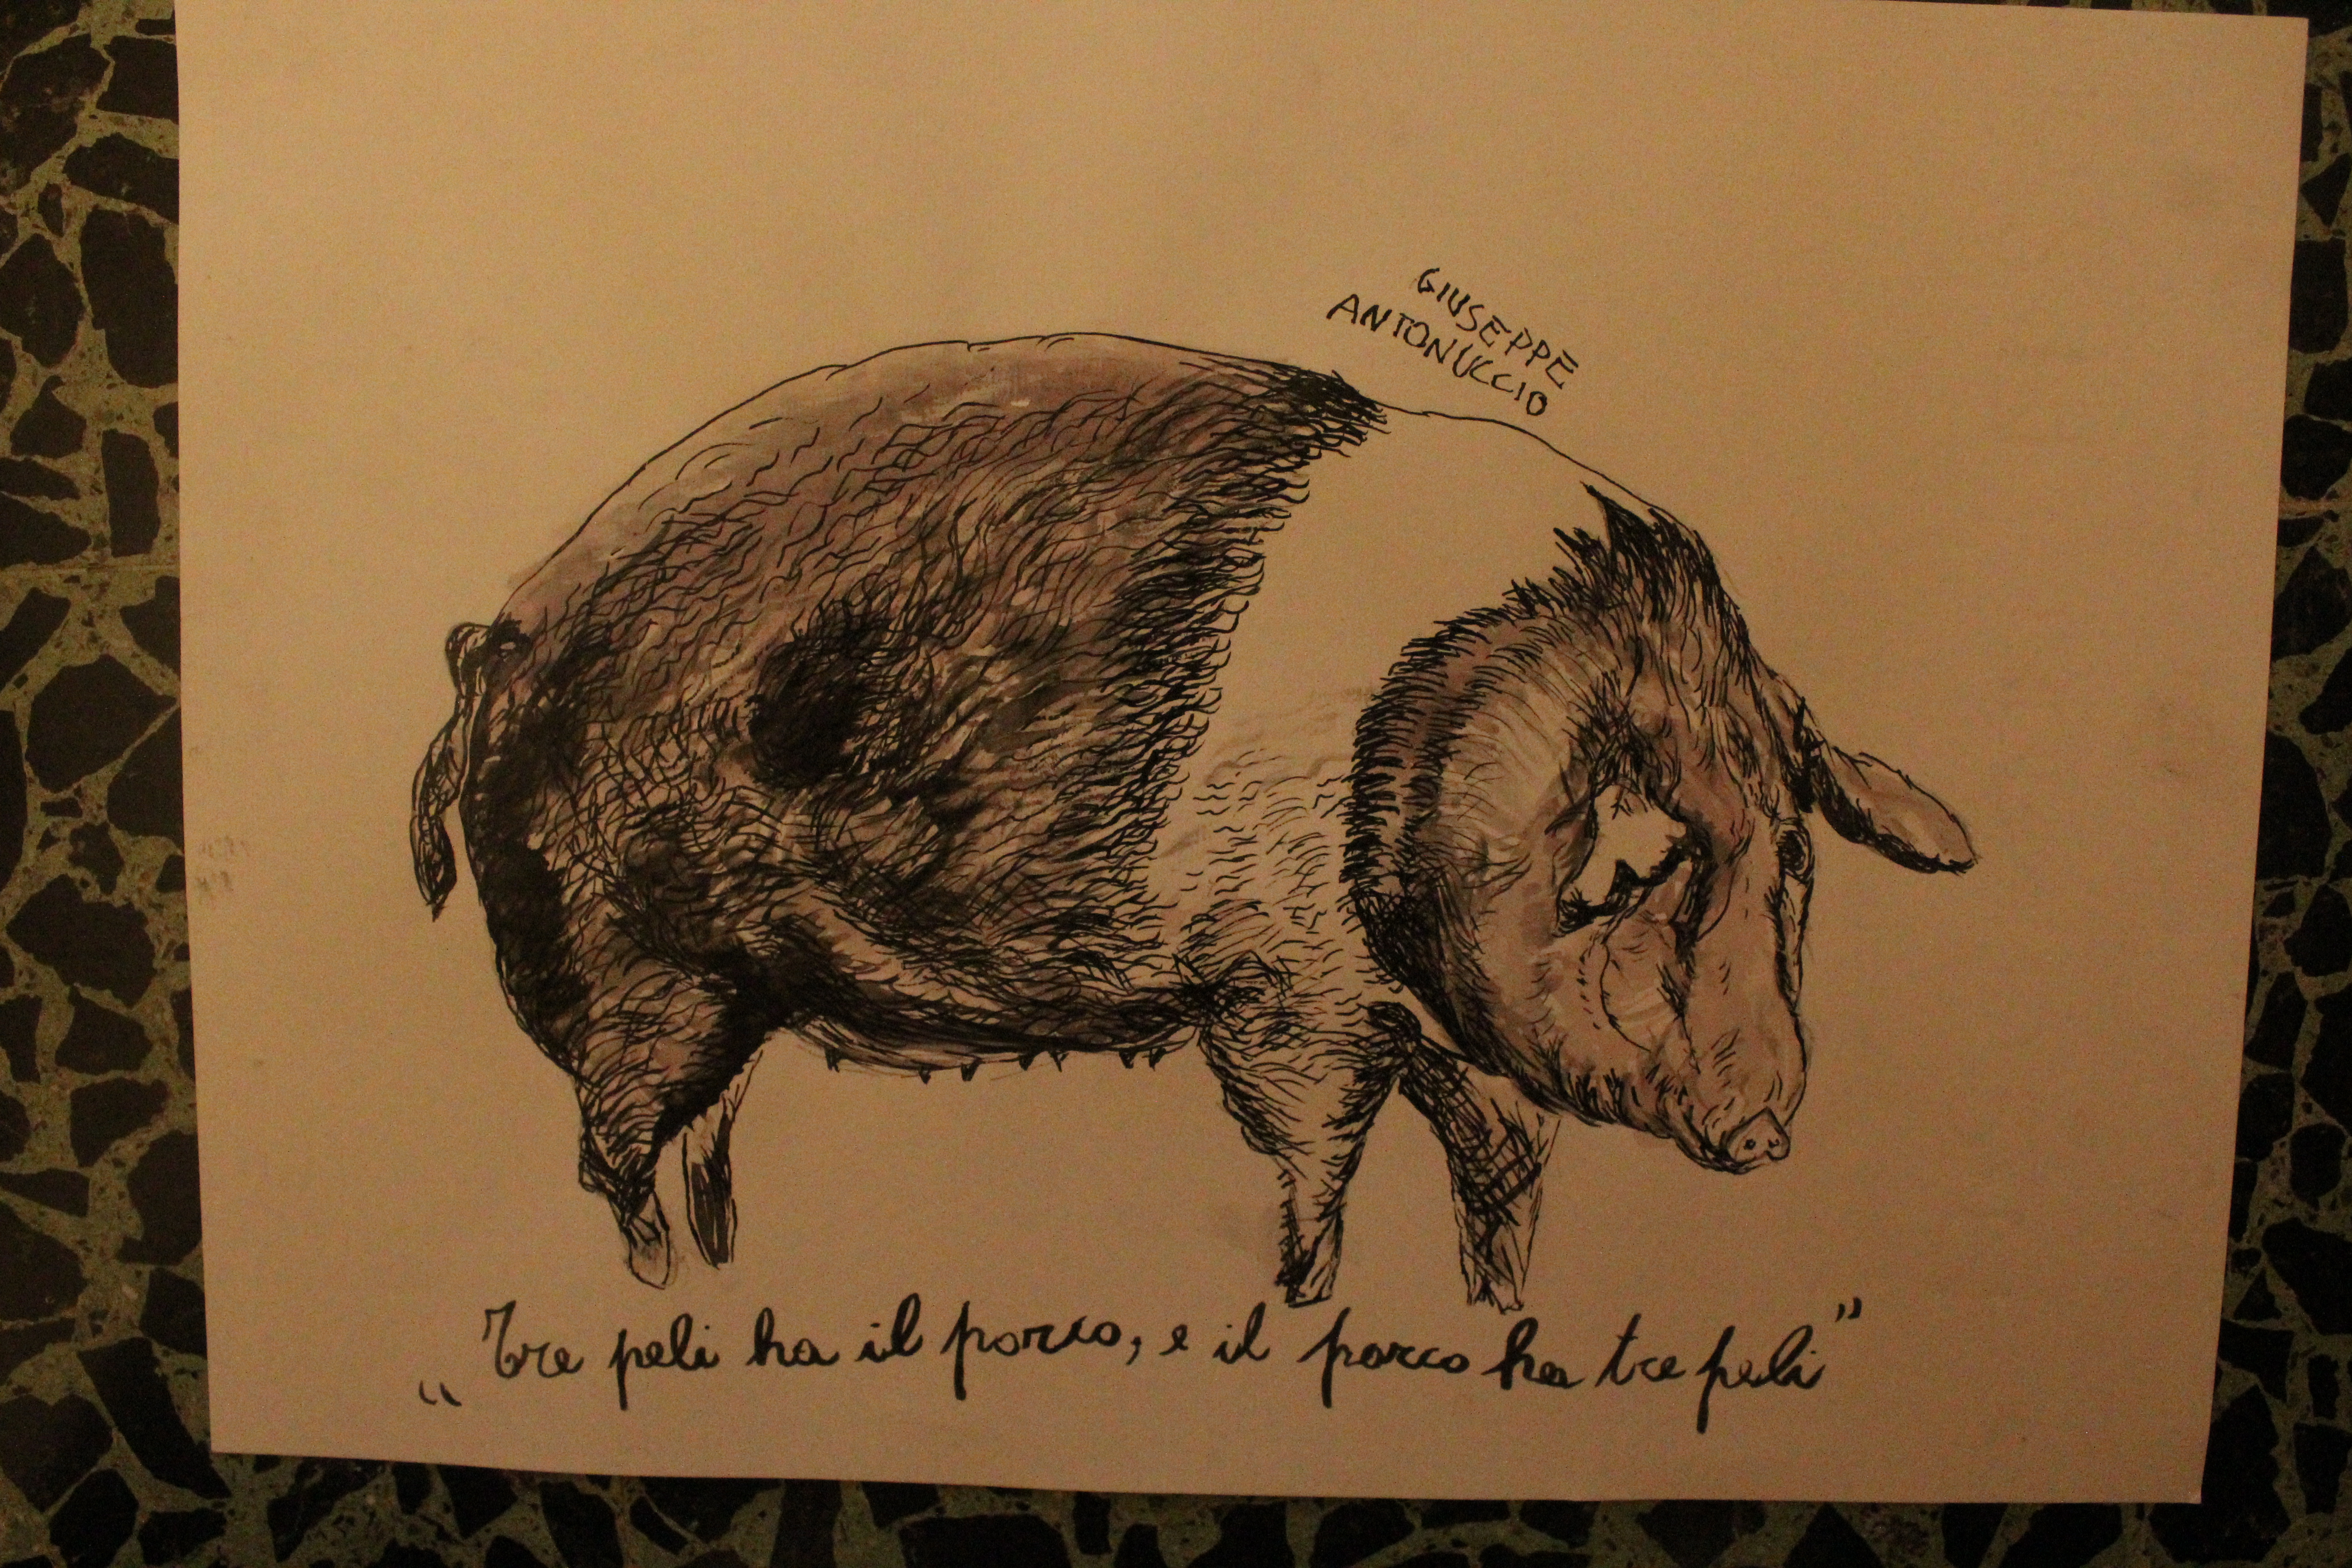 GIUSEPPE
ANTONUCCIO
„Tre peli ha il porco, e il porco ha tre peli”